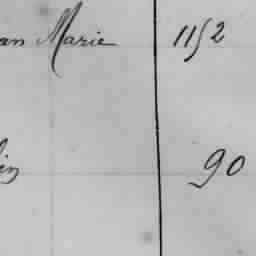 an Marie 1152
in 90